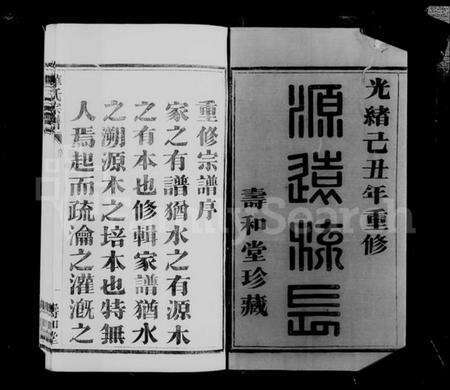 光緒己丑年重修
源遠流長
壽和堂珍藏
重修宗譜序
家之有譜猶水之有源木
之有本也修輯家譜猶水
之溯源木之培本也特無
人焉起而疏瀹之灌溉之
壽和堂